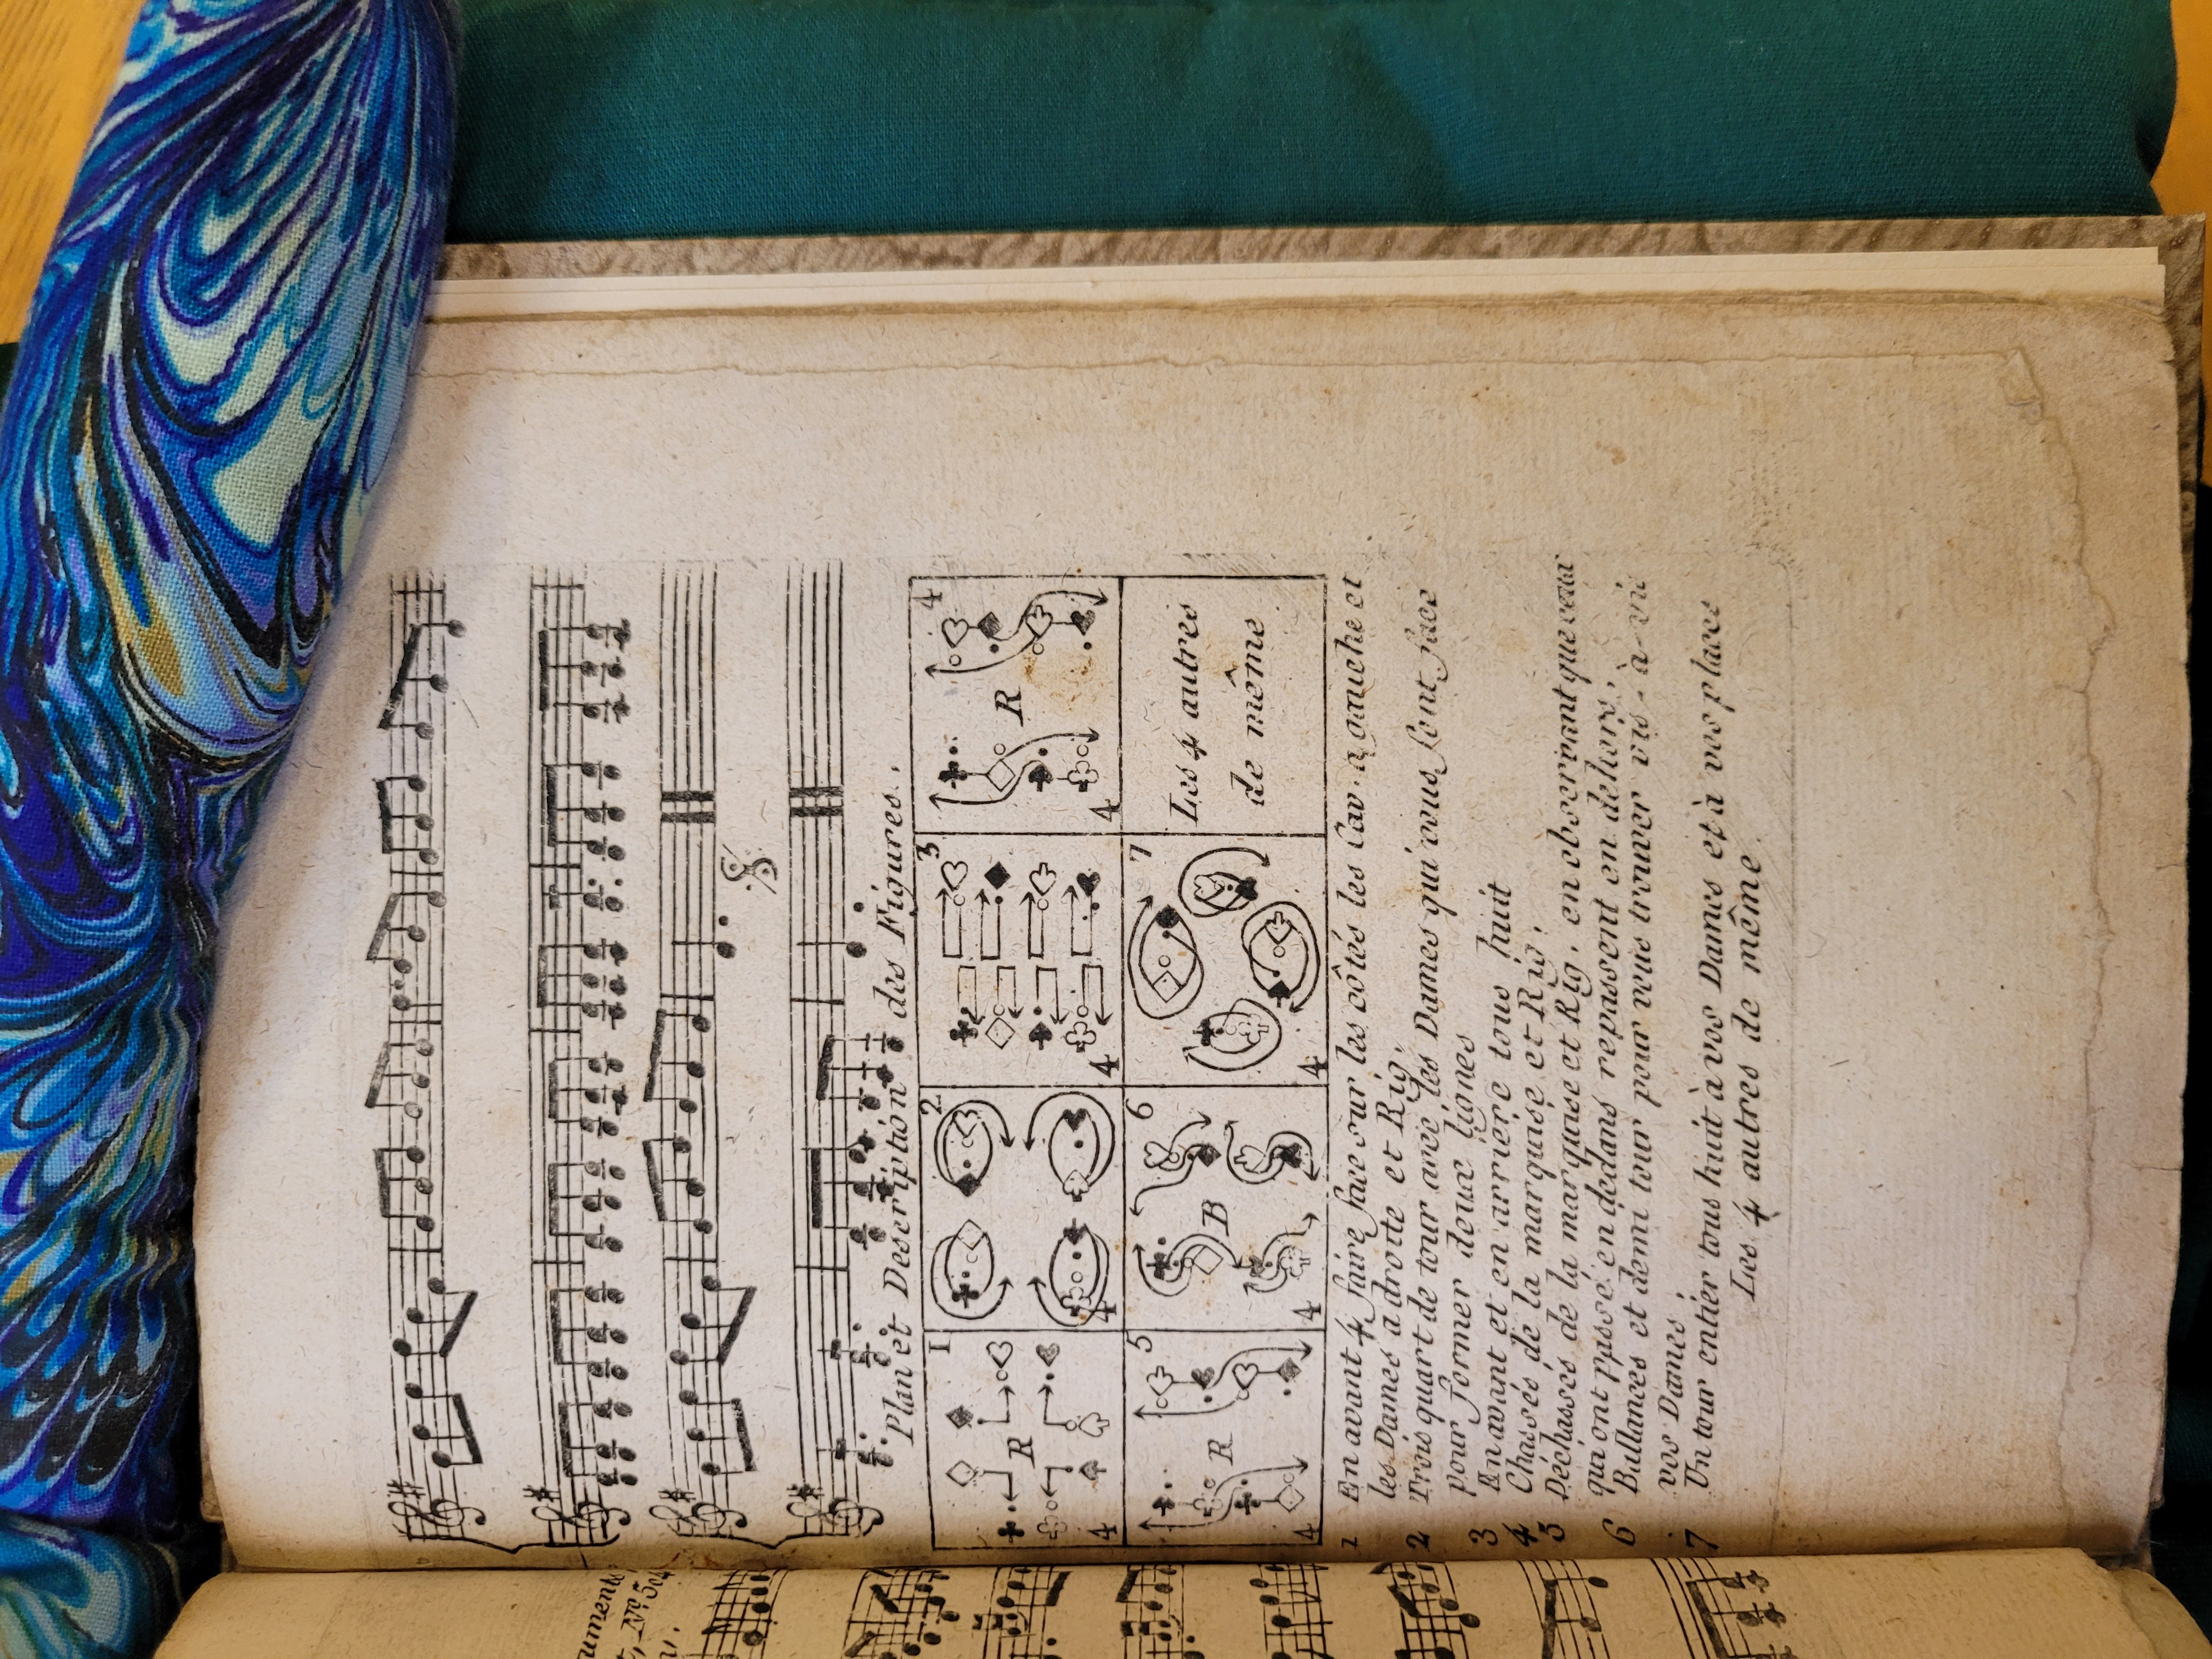 Plan et Description des Figures.
1
R
4
2
4
3
4
4
R
4
5
R
4
6
B
4
7
4
Les 4 autres
de même
1 En avant 4 faire face sur les côtés les Cav. a gauche et
les Dames a droite et Rig.
2 Trois quart de tour avec les Dames qui vous font face
pour former deux lignes
3 En avant et en arriere tous huit
4 Chassés de la marquise et Rig.
5 Déchassés de la marquise et Rig. en observant que ceux
qui ont passé en dedans repassent en dehors,
6 Ballances et demi tour pour vous trouver vis-à-vis
vos Dames
7 Un tour entier tous huit à vos Dames et à vos places
Les 4 autres de même
uments
Nº 5